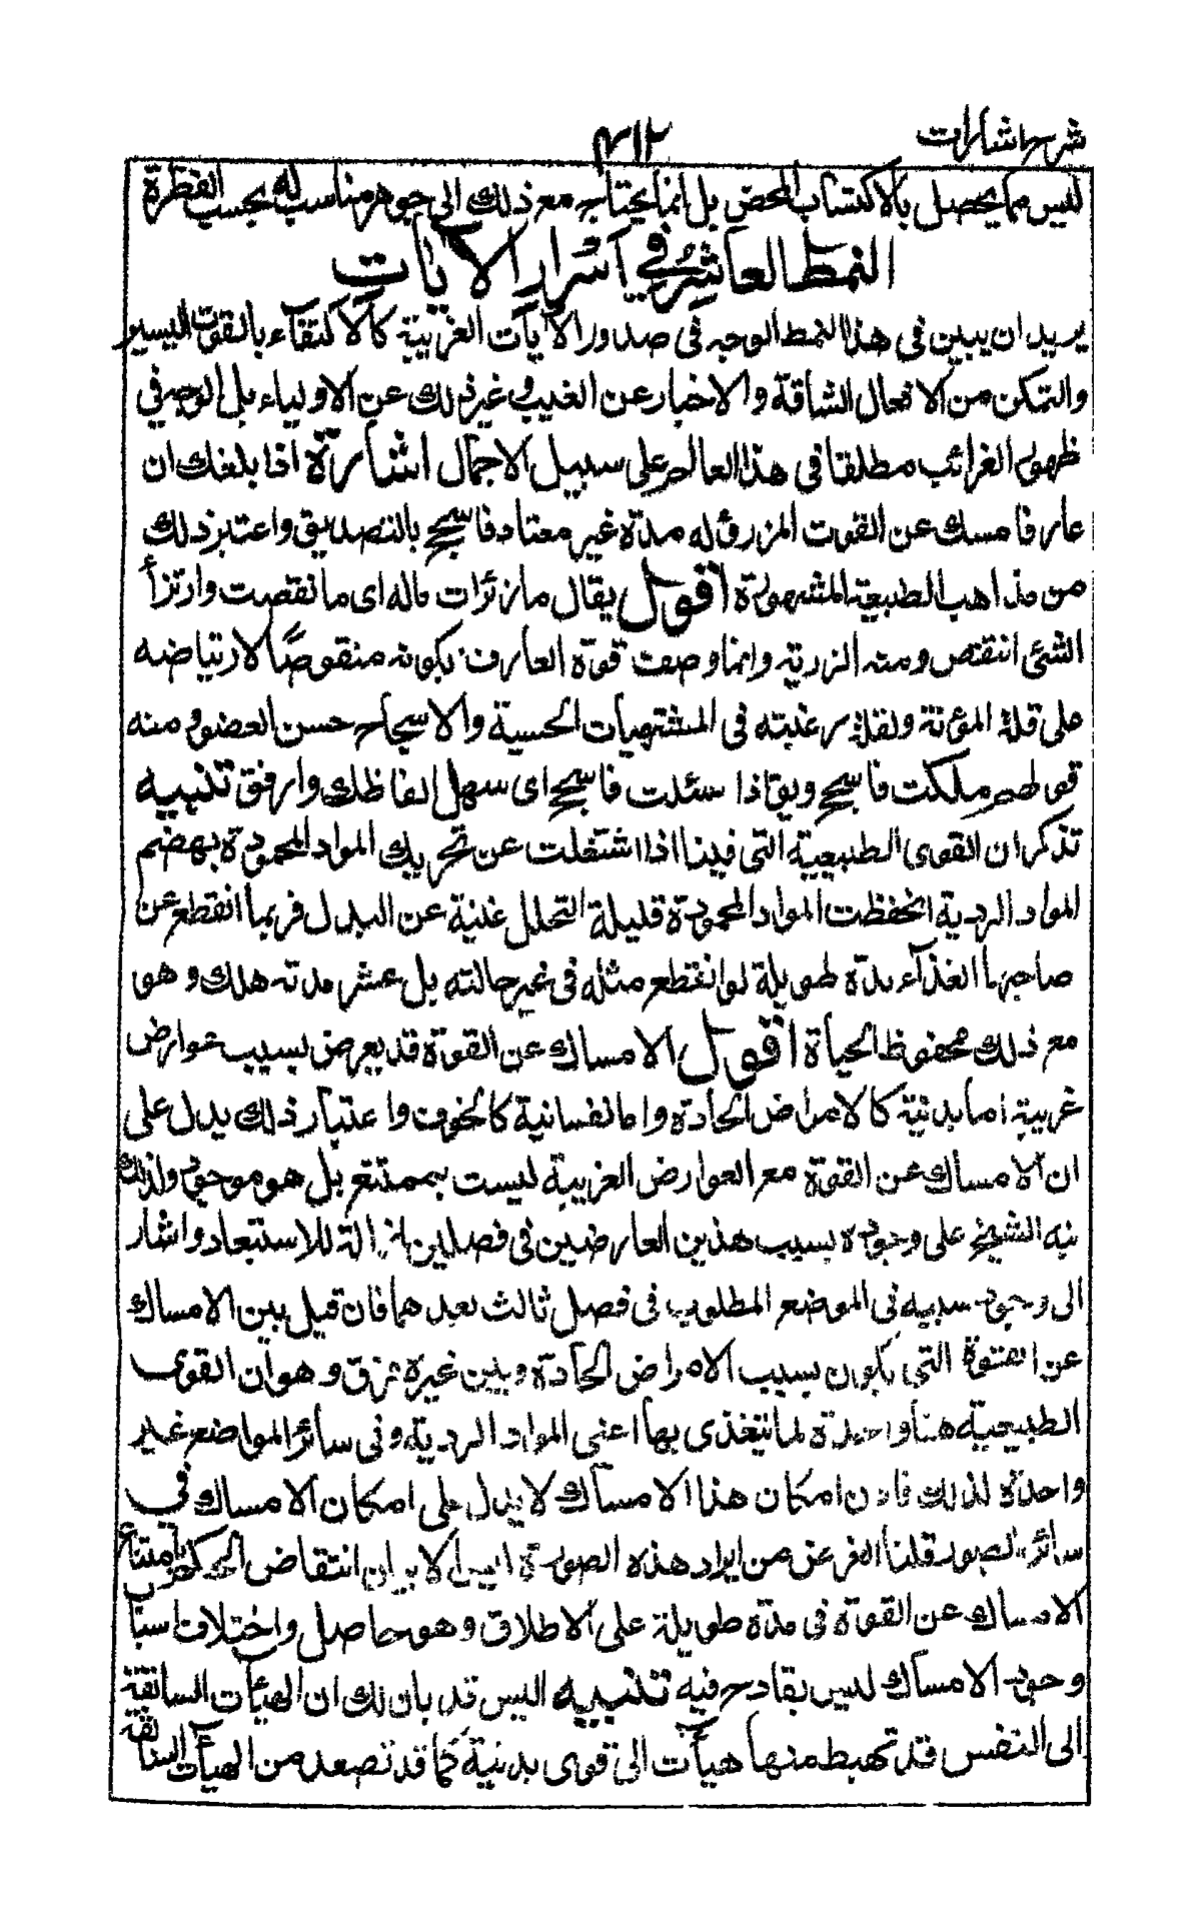 شرح اشارات
٤١٢
ليس مما يحصل بالاكتساب المحض بل انما يحتاج مع ذلك الى جوهر مناسب له بحسب الفطرة
النمط العاشر في اسرار الآيات
يريد ان يبين فى هذا النمط الوجه فى صدور الآيات الغريبة كالاكتفاء بالقوت اليسير
والتمكن من الافعال الشاقة والاخبار عن الغيب وغير ذلك عن الاولياء بل الوجه في
ظهور الغرائب مطلقا فى هذا العالم على سبيل الاجمال اشارة اذا بلغك ان
عارفا امسك عن القوت المزروٌ له مدة غير معتاد فاسجح بالتصديق واعتبر ذلك
من مذاهب الطبيعة المشهورة اقول يقال مارزئرات ماله اى ما نقصت وارتزأ
الشئ انتقص ومنه الزرية وانما وصف قوة العارف بكونه منقوصًا لارتياضه
على قلة المؤنة ولقلة رغبته فى المشتهيات الحسية والاسجاح حسن العضو ومنه
قولهم ملكت فاسجح ويق اذا سئلت فاسجح اى سهل الفاظك وارفق تنبيه
تذكر ان القوى الطبيعية التى فينا اذا اشتغلت عن تحريك المواد المحمودة بهضم
المواد الردية انحفظت المواد المحمودة قليلة التحلل غنية عن البدل فربما انقطع عن
صاحبها الغذآء مدة طويلة لو انقطع مثله فى غير حالته بل عشر مدته هلك وهو
مع ذلك محفوظ الحياة اقول الامساك عن القوة قد يعرض بسبب عوارض
غريبة اما بدنية كالامراض الحادة واما نفسانية كالخوف واعتبار ذلك يدل على
ان الامساك عن القوة مع العوارض الغريبة ليست بممتنع بل هو موجود ولذلك
نبه الشيخ على وجوده بسبب هذين العارضين فى فصلين ازالة للاستبعاد واشار
الى وجود سببه فى الموضع المطلوب فى فصل ثالث بعدهما فان قيل بين الامساك
عن القوة التى يكون بسبب الامراض الحادة وبين غيره فرق وهو ان القوى
الطبيعية هنا واجدة لما يتغذى بها اعنى المواد الردية وفى سائر المواضع غير
واجدة لذلك فاذن امكان هذا الامساك لا يدل على امكان الامساك في
سائر الصور قلنا الغرض من ايراد هذه الصورة ليس الا بيان انتقاض الحكم بامتناع
الامساك عن القوة فى مدة طويلة على الاطلاق وهو حاصل واختلاف اسباب
وجود الامساك ليس بقادح فيه تنبيه اليس قد بان لك ان الهيئات السابقة
الى النفس قد تهبط منها هيآت الى قوى بدنية كما قد تصعد من الهيآت السابقة